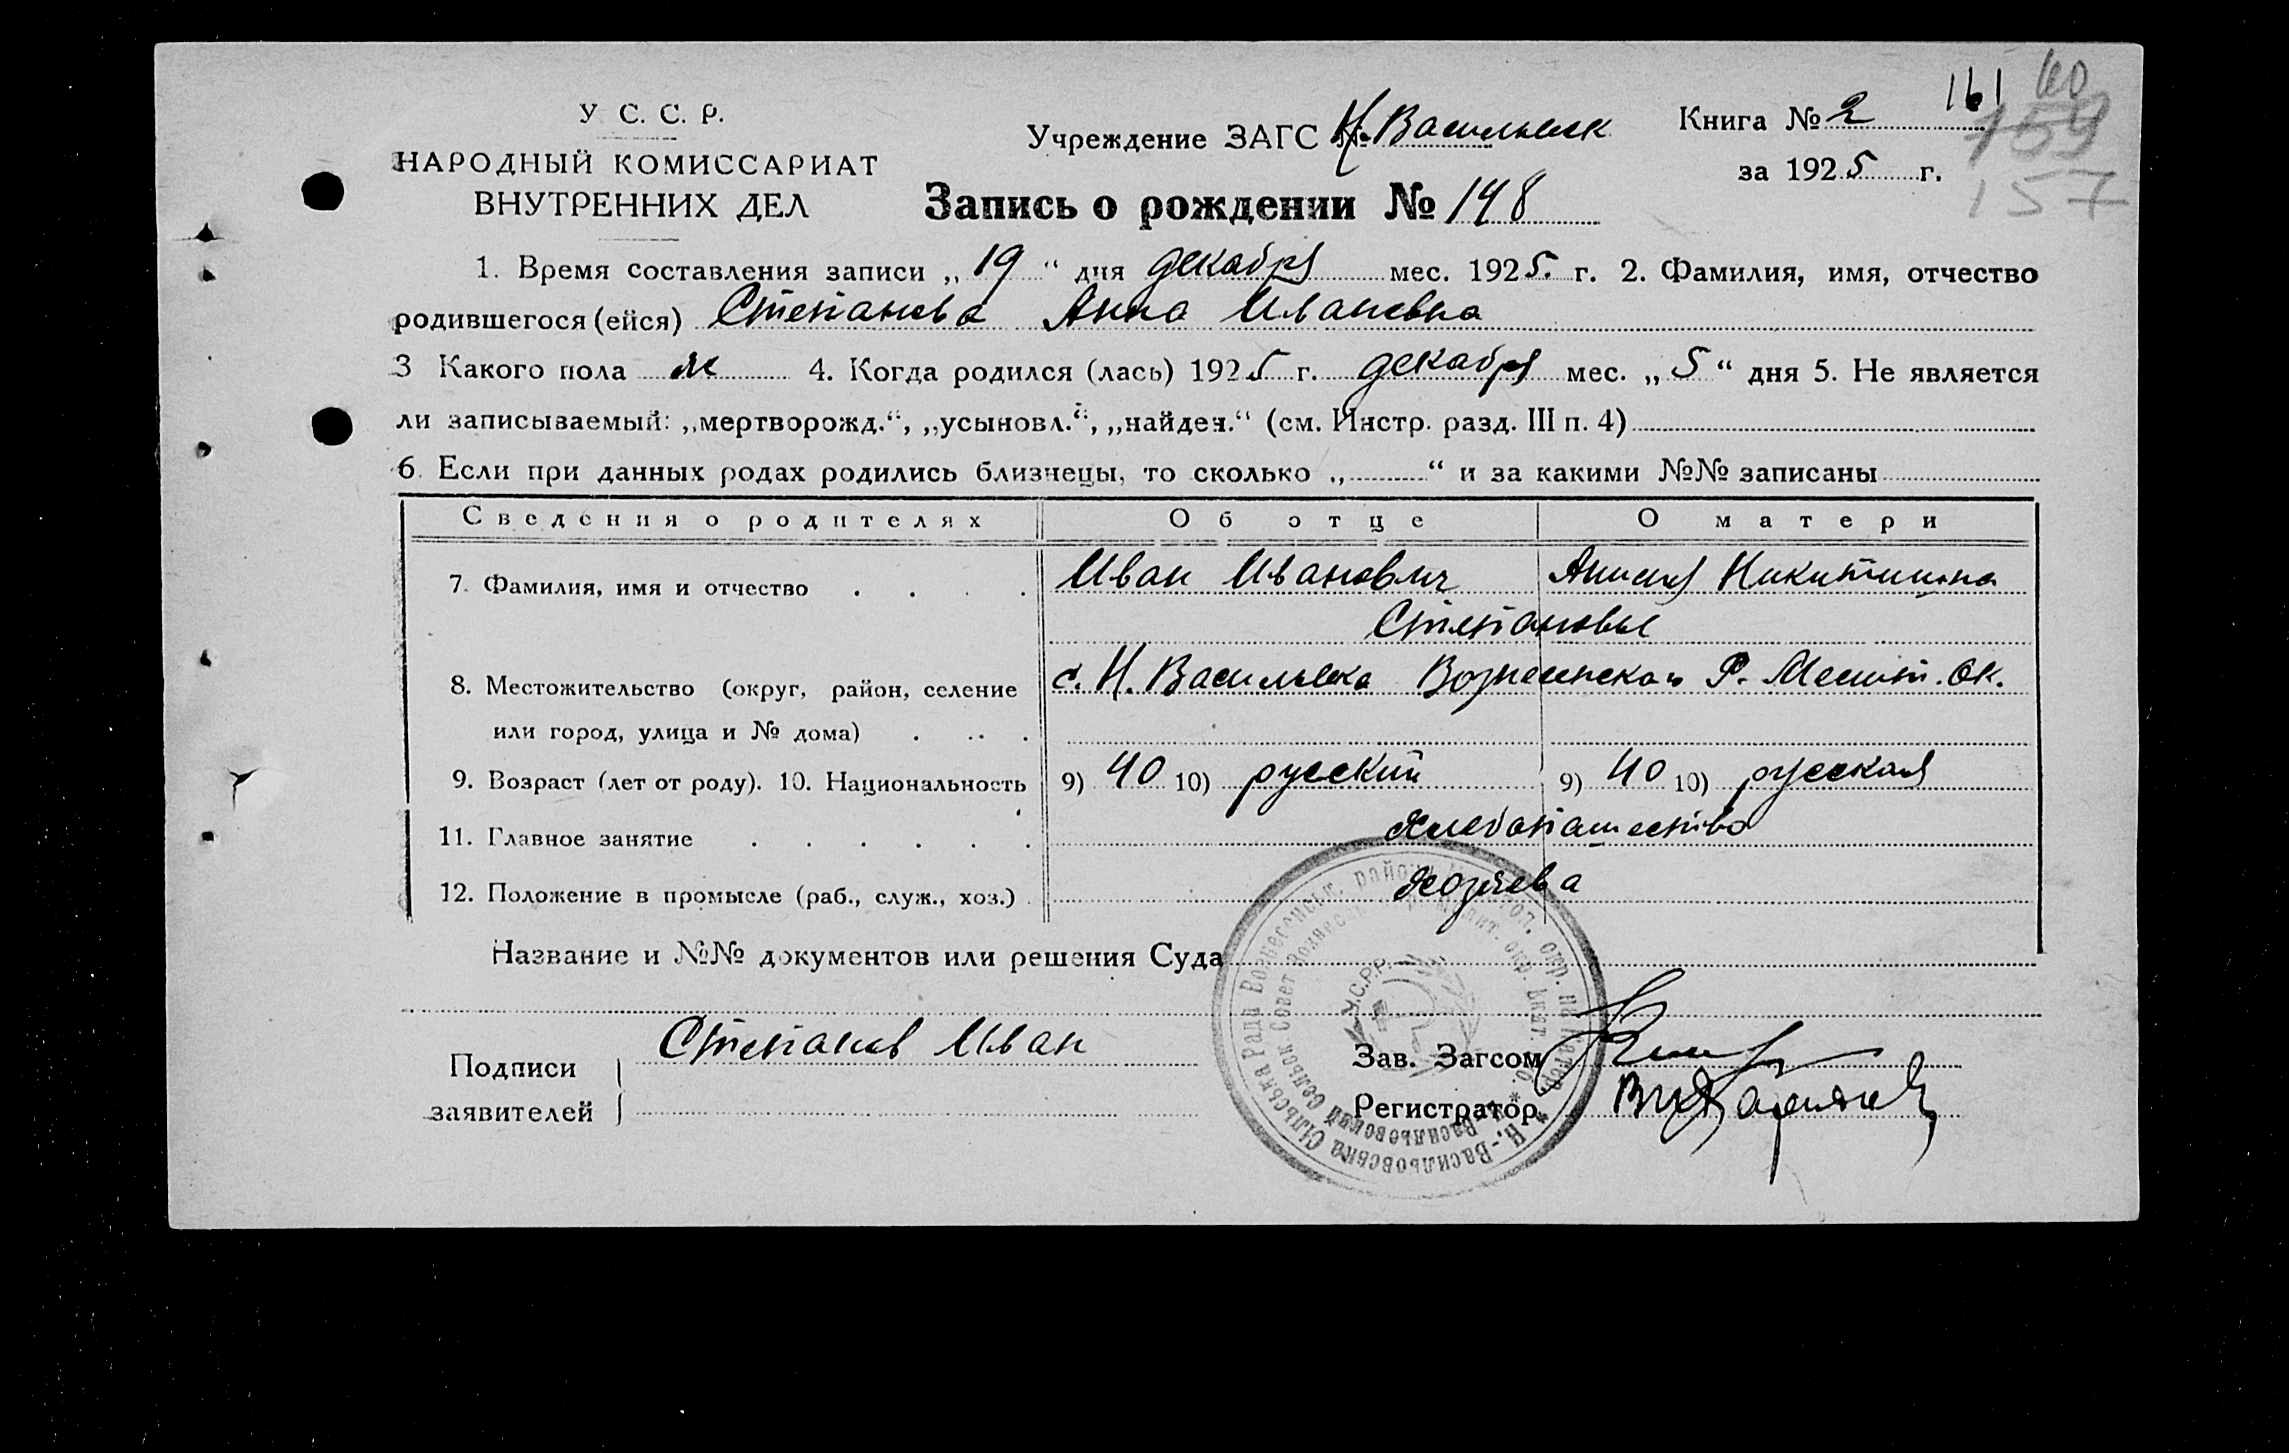 161 160
159
157
У С. С. Р.
НАРОДНЫЙ КОМИССАРИАТ
ВНУТРЕННИХ ДЕЛ
Учреждение ЗАГС № Н Васильевск
Книга № 2
за 1925 г.
Запись о рождении № 148
1. Время составления записи „19“ дня декабря мес. 1925. г. 2. Фамилия, имя, отчество
родившегося (ейся) Степанова Анна Ивановна
3 Какого пола ж 4. Когда родился (лась) 1925 г. декабря мес. „5“ дня 5. Не является
ли записываемый: „мертворожд.“, „усыновл.“, „найден.“ (см. Инстр. разд. III п. 4)
6. Если при данных родах родились близнецы, то сколько „ “ и за какими №№ записаны
Сведения о родителях Об отце О матери
7. Фамилия, имя и отчество Иван Иванович Анисия Никитишна
Степановы
8. Местожительство (округ, район, селение с. Н. Васильевка Вознесенскаго Р. Мелит. Ок.
или город, улица и № дома)
9. Возраст (лет от роду). 10. Национальность 9) 40 10) русский 9) 40 10) русская
11. Главное занятие хлебопашество
12. Положение в промысле (раб., служ., хоз.) хозяева
Название и №№ документов или решения Суда
Подписи Степанов Иван
заявителей
Зав. Загсом
Регистратор
Н.-Васильовська Сільська Рада Вознесенськ. району Мелітоп. окр. на Катер.
Н.-Васильевский Сельск. Совет Вознес. Мелит. окр. Екат.
У.С.Р.Р.